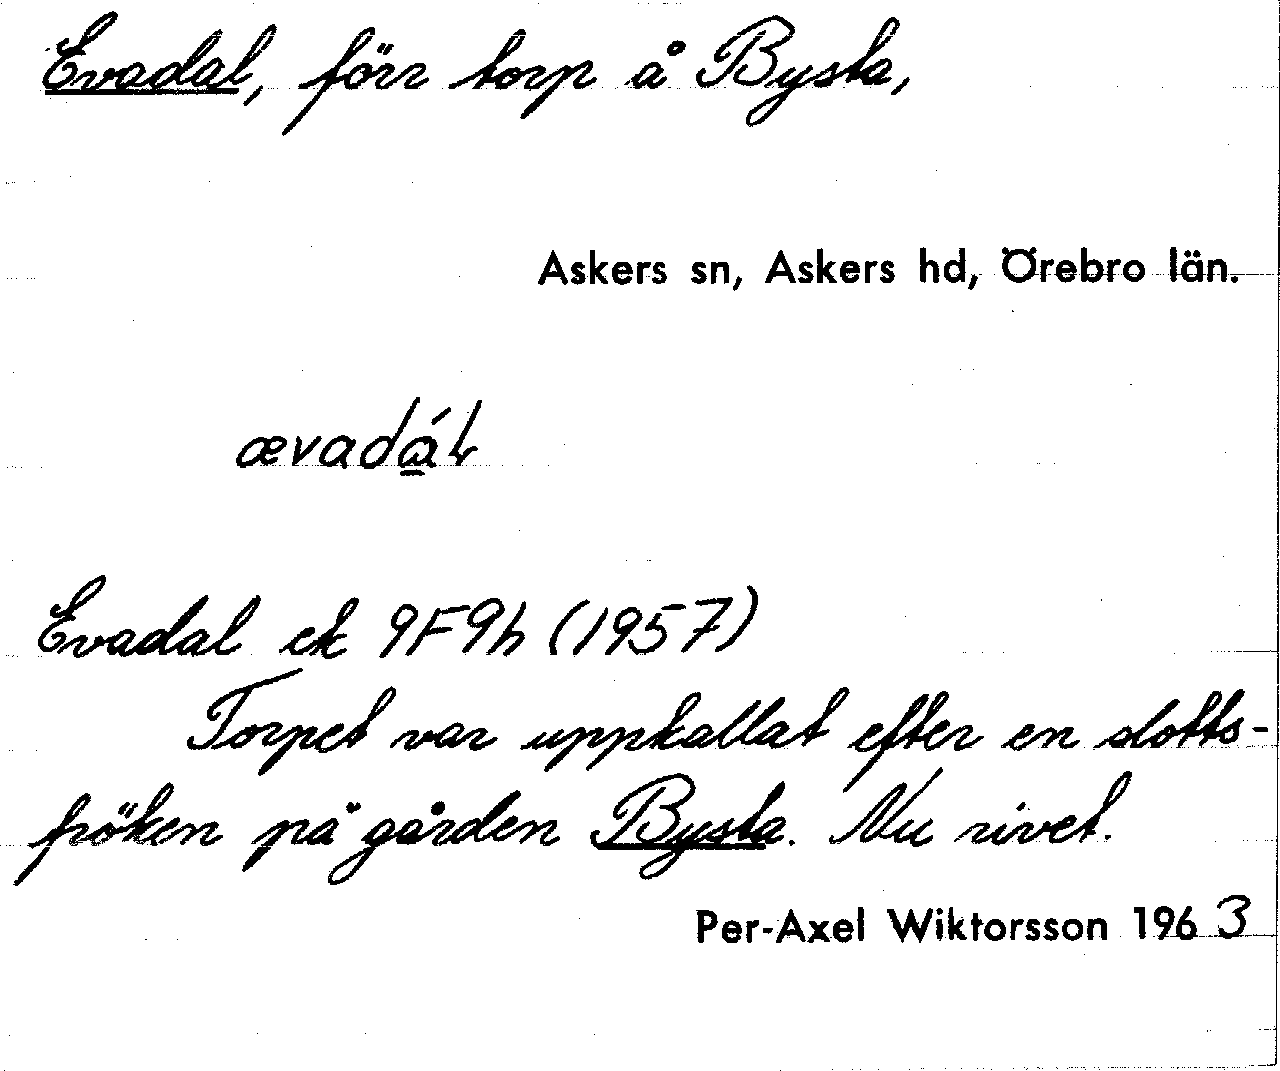 Evadal, förr torp å Bysta,
Askers sn, Askers hd, Örebro län.
ævadа̱́l
Evadal ek 9F9h (1957)
Torpet var uppkallat efter en slotts-
fröken på gården Bysta. Nu rivet.
Per-Axel Wiktorsson 1963